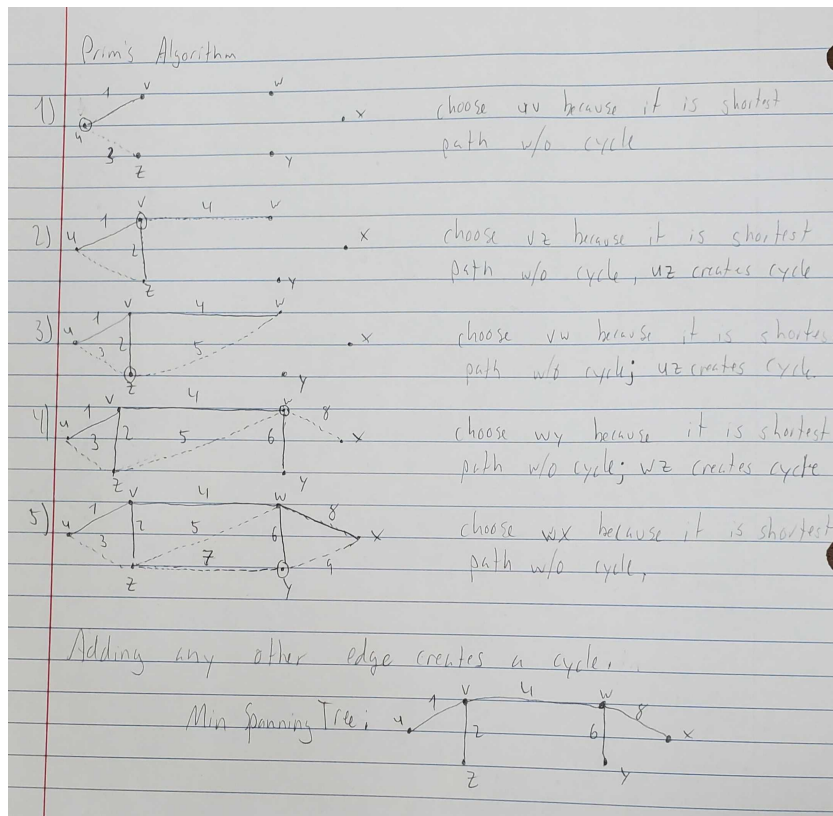 Prim's Algorithm
1) u 1 v w x 3 z y choose uv because it is shortest
path w/o cycle
2) u 1 v 4 w x 2 z y choose vz because it is shortest
path w/o cycle, uz creates cycle
3) u 1 v 4 w x 3 2 5 z y choose vw because it is shortes
path w/o cycle; uz creates cycle.
4) u 1 v 4 8 x 3 2 5 6 z y choose wy because it is shortest
path w/o cycle; wz creates cycle
5) u 1 v 4 w 8 x 3 2 5 6 7 9 z y choose wx because it is shortest
path w/o cycle,
Adding any other edge creates a cycle.
Min Spanning Tree: u 1 v 4 w 8 x 2 6 z y